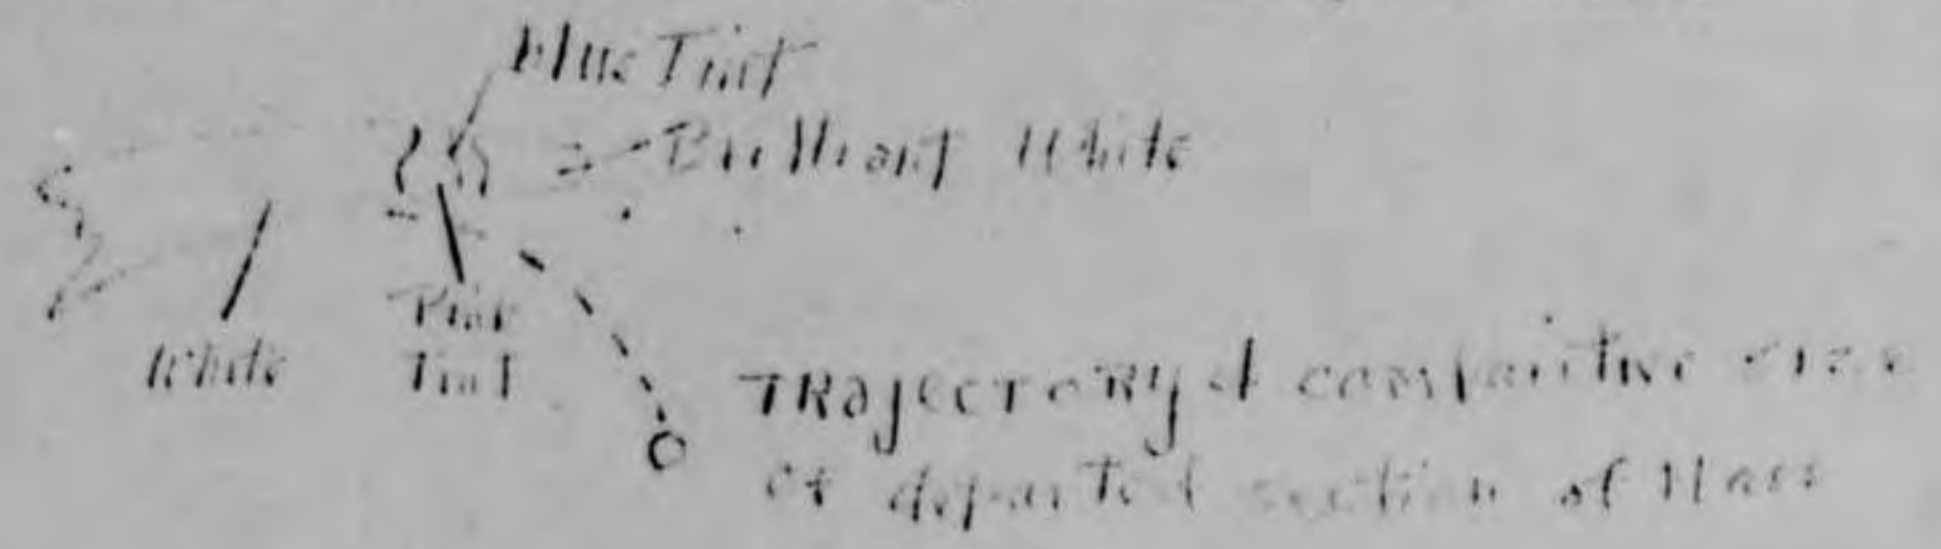 Blue Tint
Brilliant White
White
Pink
Tint
Trajectory & comparitive size
of departed section of Mass